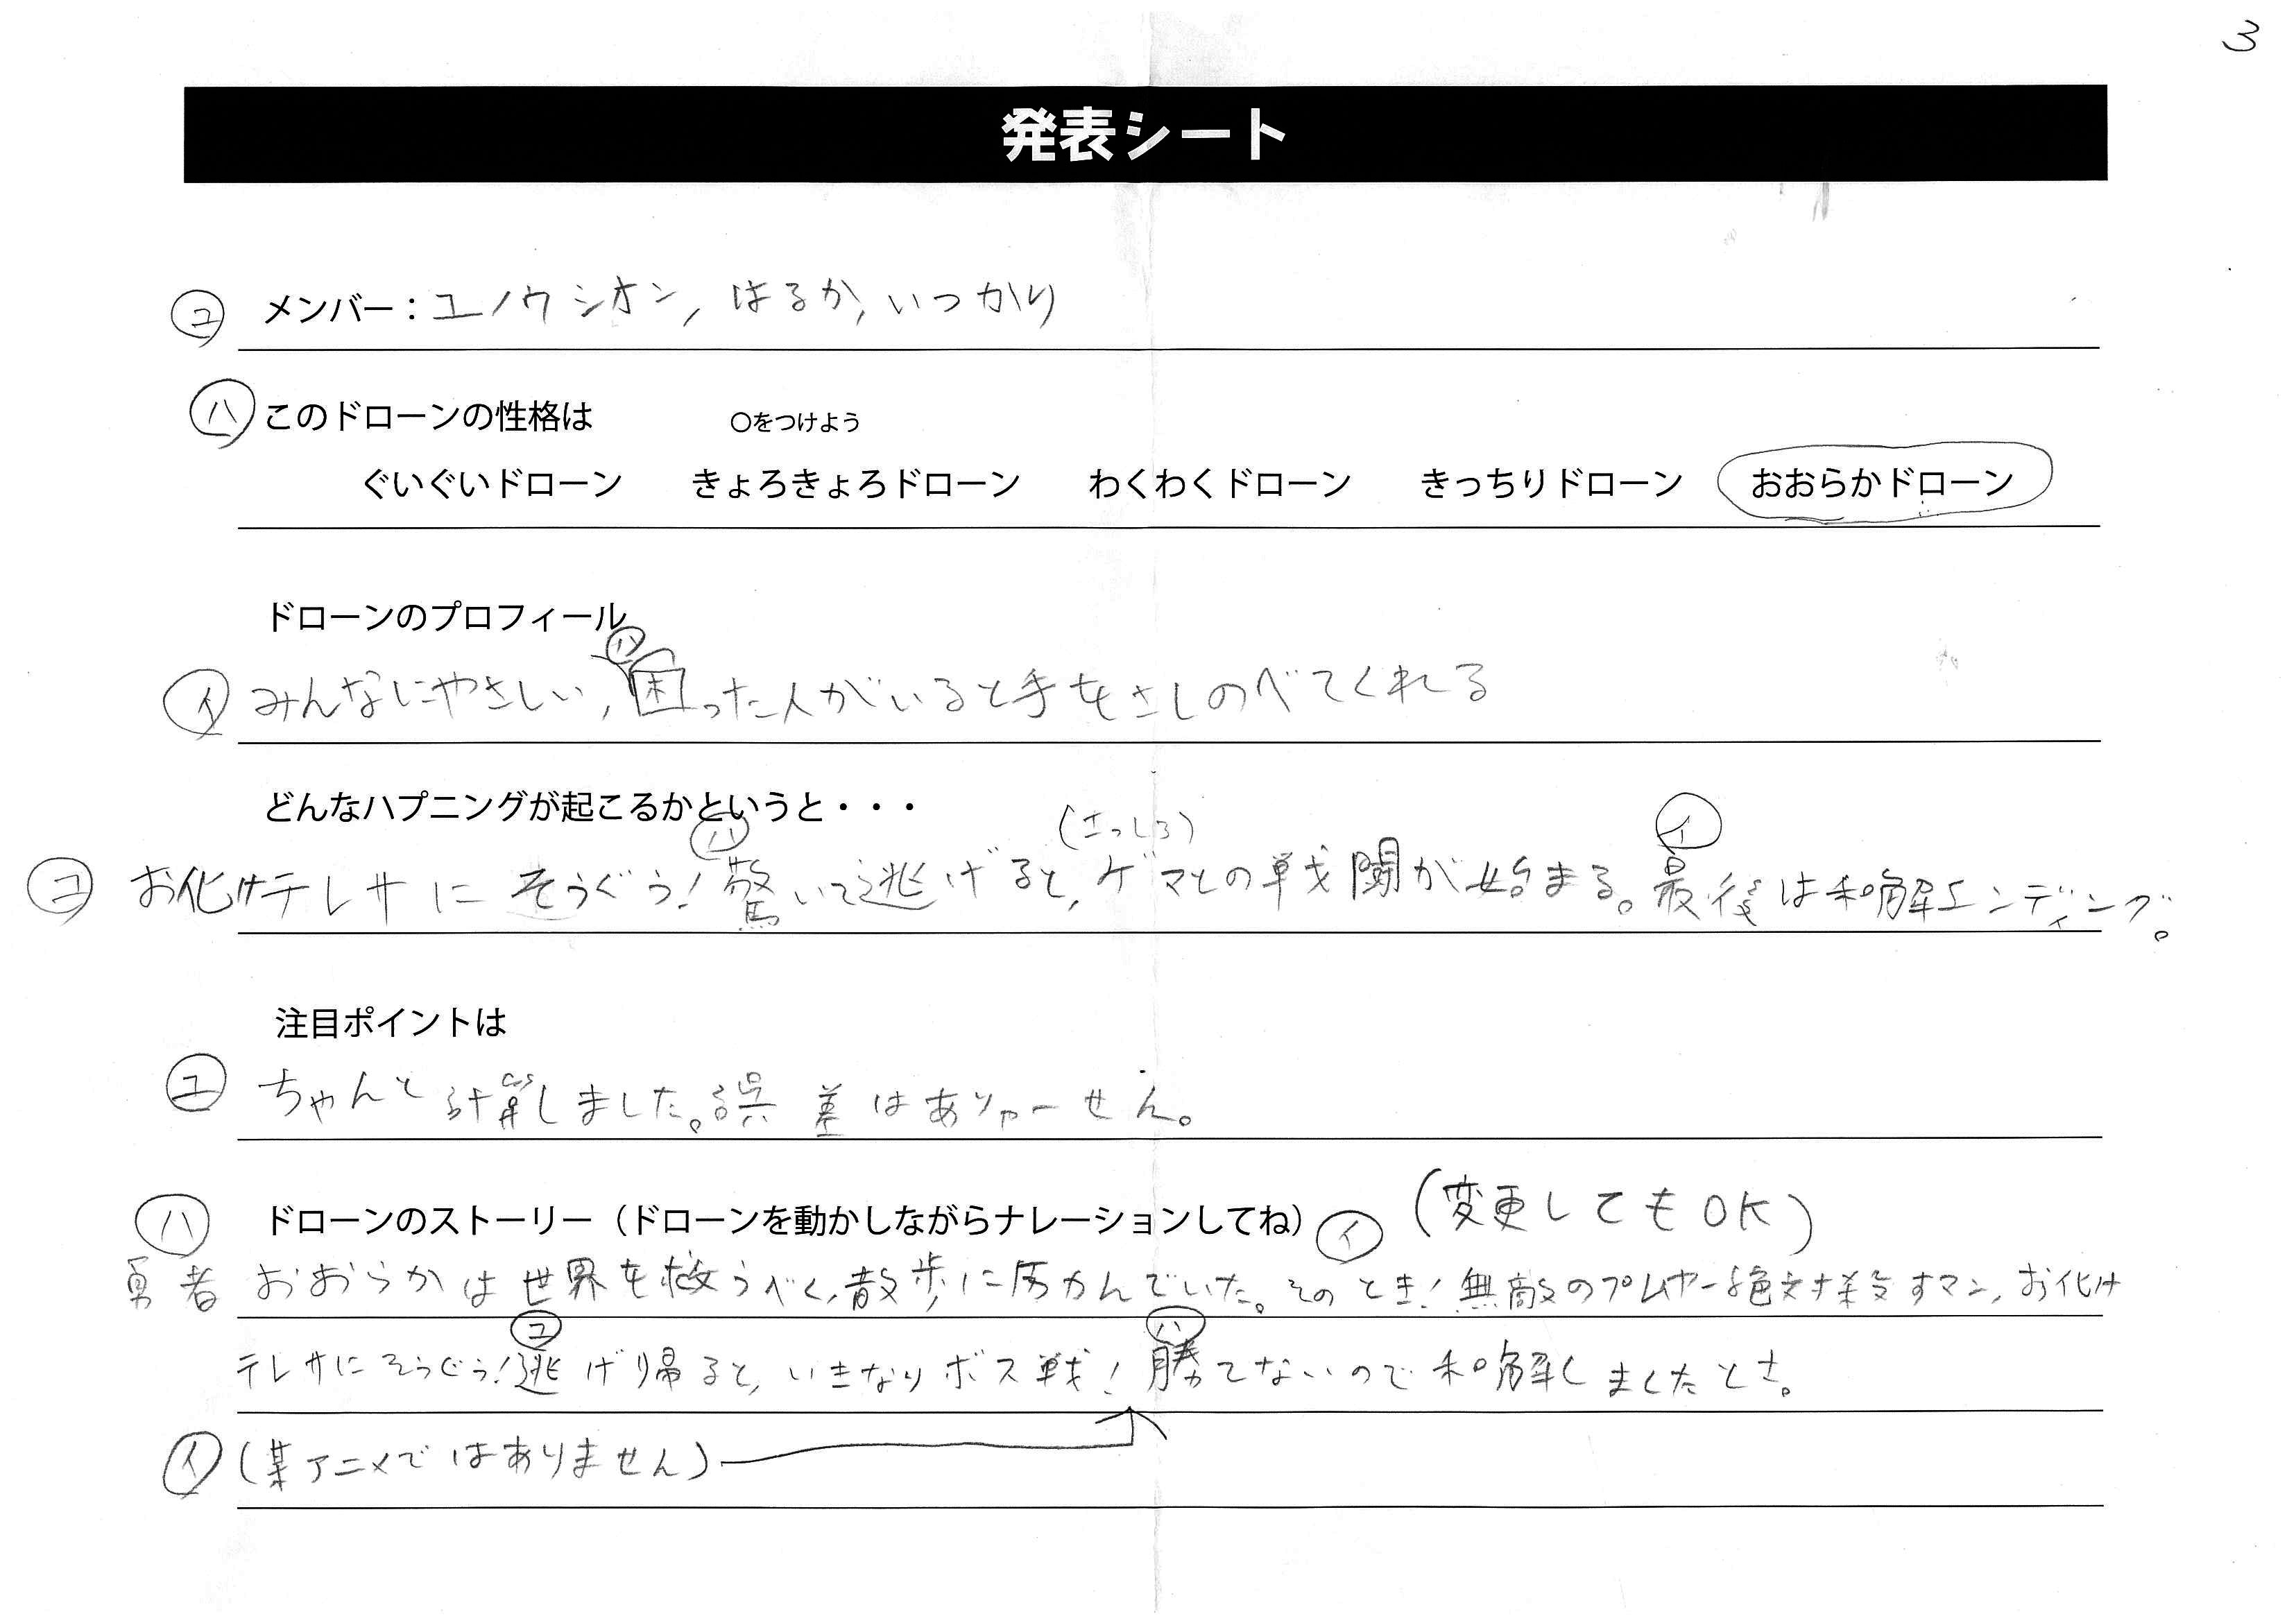 3
発表シート
ユ メンバー：ユノウシオン, はるか, いっかり
ハ このドローンの性格は ○をつけよう
ぐいぐいドローン きょろきょろドローン わくわくドローン きっちりドローン おおらかドローン
ドローンのプロフィール
ハ
イ みんなにやさしい, 困った人がいると手をさしのべてくれる
どんなハプニングが起こるかというと・・・
ハ (さっしろ) イ
ユ お化けテレサにそうぐう!驚いて逃げると, ゲマとの戦闘が始まる。最後は和解エンディング。
注目ポイントは
ユ ちゃんと計算しました。誤差はありゃーせん。
ハ ドローンのストーリー（ドローンを動かしながらナレーションしてね） イ (変更してもOK)
勇者おおらかは世界を救うべく,散歩に出かんでいた。そのとき!無敵のプレヤー絶対殺すマン,お化け
ユ ハ
テレサにそうぐう!逃げ帰ると,いきなりボス戦!勝てないので和解しましたとさ。
イ (某アニメではありません)